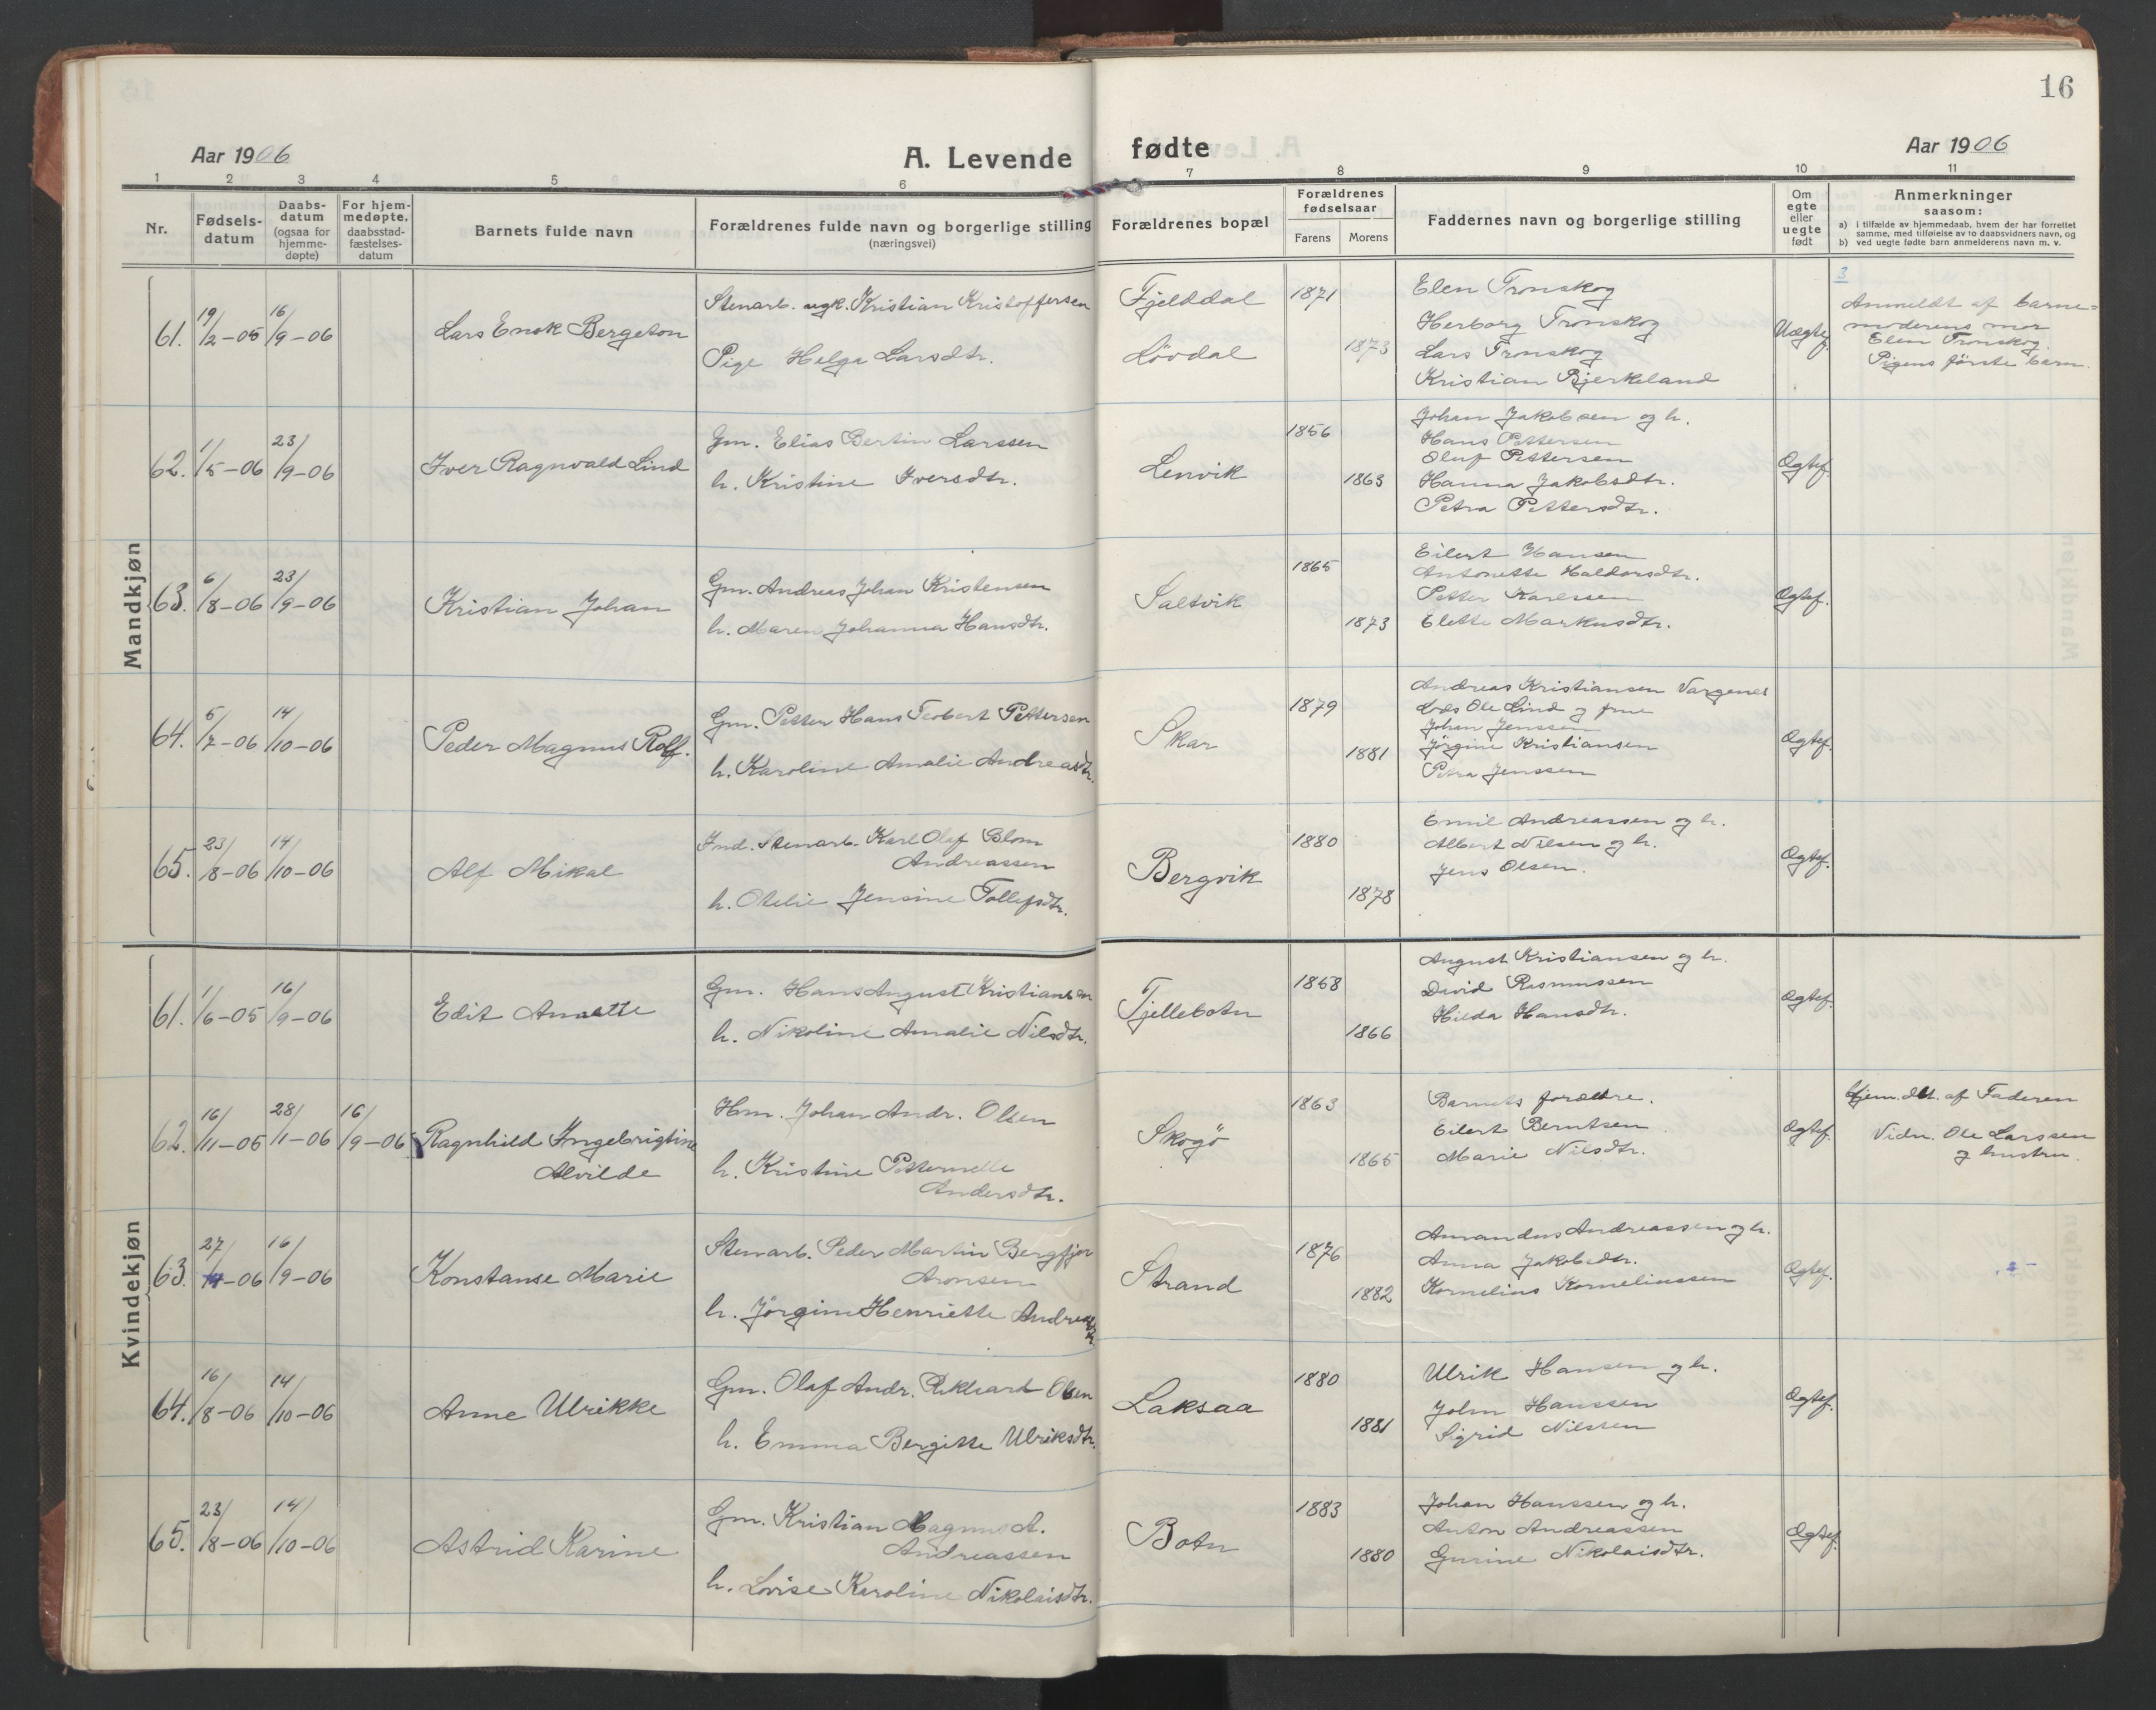 16
Aar 1906
A. Levende fødte
Aar 1906
1 2 3 4 5 6 7 8 9 10 11
Nr.
Fødsels-
datum
Daabs-
datum
(ogsaa for
hjemme-
døpte)
For hjem-
medøpte,
daabsstad-
fæstelses-
datum
Barnets fulde navn
Forældrenes fulde navn og borgerlige stilling
(næringsvei)
Forældrenes bopæl
Forældrenes
fødselsaar
Farens Morens
Faddernes navn og borgerlige stilling
Om
egte
eller
uegte
født
Anmerkninger
saasom:
a) i tilfælde av hjemmedaab, hvem der har forrettet
samme, med tilføielse av to daabsvidners navn, og
b) ved uegte fødte barn anmelderens navn m. v.
Mandkjøn
61. 19/2-05 16/9-06
Lars Enok Bergeton
Stenarb. ugk. Kristian Kristoffersen
Pige Helga Larsdtr.
Fjelddal
Lövdal
1871
1873
Elen Tronskog
Herborg Tronskog
Lars Tronskog
Kristian Bjerkeland
Uægtef.
3
Anmeldt af barne=
moderens mor
Elen Tronskog.
Pigens förste barn.
62. 1/5-06 23/9-06
Iver Ragnvald Lind
Gm. Elias Bertin Larssen
h. Kristine Iversdtr.
Lenvik
1856
1863
Johan Jakobsen og h.
Hans Pettersen
Oluf Pettersen
Hanna Jakobsdtr.
Petra Pettersdtr.
Ægtef.
63. 6/8-06 23/9-06
Kristian Johan
Gm. Andreas Johan Kristensen
h. Maren Johanna Hansdtr.
Saltvik
1865
1873
Eilert Hansen
Antonette Haldorsdtr.
Petter Karlssen
Elette Markusdtr.
Ægtef.
64. 5/7-06 14/10-06
Peder Magnus Rolf.
Gm. Petter Hans Teobert Pettersen
h. Karoline Amalie Andreasdtr.
Skar
1879
1881
Andreas Kristiansen Vargenes
Ole Lind og frue
Johan Jenssen
Jörgine Kristiansen
Petra Jenssen
Ægtef.
65. 23/8-06 14/10-06
Alf Mikal
Ind. Stenarb. Karl Olaf Blom
Andreassen
h. Otelie Jensine Tollefsdtr.
Bergvik
1880
1878
Emil Andreassen og h.
Albert Nilsen og h.
Jens Olsen.
Ægtef.
Kvindekjøn
61. 1/6-05 16/9-06
Edit Anette
Gm. Hans August Kristiansen
h. Nikoline Amalie Nilsdtr.
Fjellebotn
1868
1866
August Kristiansen og h.
David Rasmussen
Hilda Hansdtr.
Ægtef.
62. 16/11-05 28/1-06 16/9-06
Ragnhild Ingebrigtine
Alvilde
Hm. Johan Andr. Olsen
h. Kristine Petternelle
Andersdtr.
Skogö
1863
1865
Barnets forældre.
Eilert Berntsen
Marie Nilsdtr.
Ægtef.
Hjem.dt. af Faderen
Vidn. Ole Larssen
og hustru.
63. 27/ -06 16/9-06
Konstanse Marie
Stenarb. Peder Martin Bergfjor
Aronsen
h. Jörgine Henriette Andreasdtr.
Strand
1876
1882
Amandus Andreassen og h.
Anna Jakobsdtr.
Kornelius Korneliussen
Ægtef.
64. 16/8-06 14/10-06
Anne Ulrikke
Gm. Olaf Andr. Rikhard Olsen
h. Emma Bergitte Ulriksdtr.
Laksaa
1880
1881
Ulrik Hansen og h.
John Hanssen
Sigrid Nilssen
Ægtef.
65. 23/8-06 14/10-06
Astrid Karine
Gm. Kristian Magnus A.
Andreassen
h. Lovise Karoline Nikolaisdtr.
Botn
1883
1880
Johan Hanssen og h.
Anton Andreassen
Gurine Nikolaisdtr.
Ægtef.